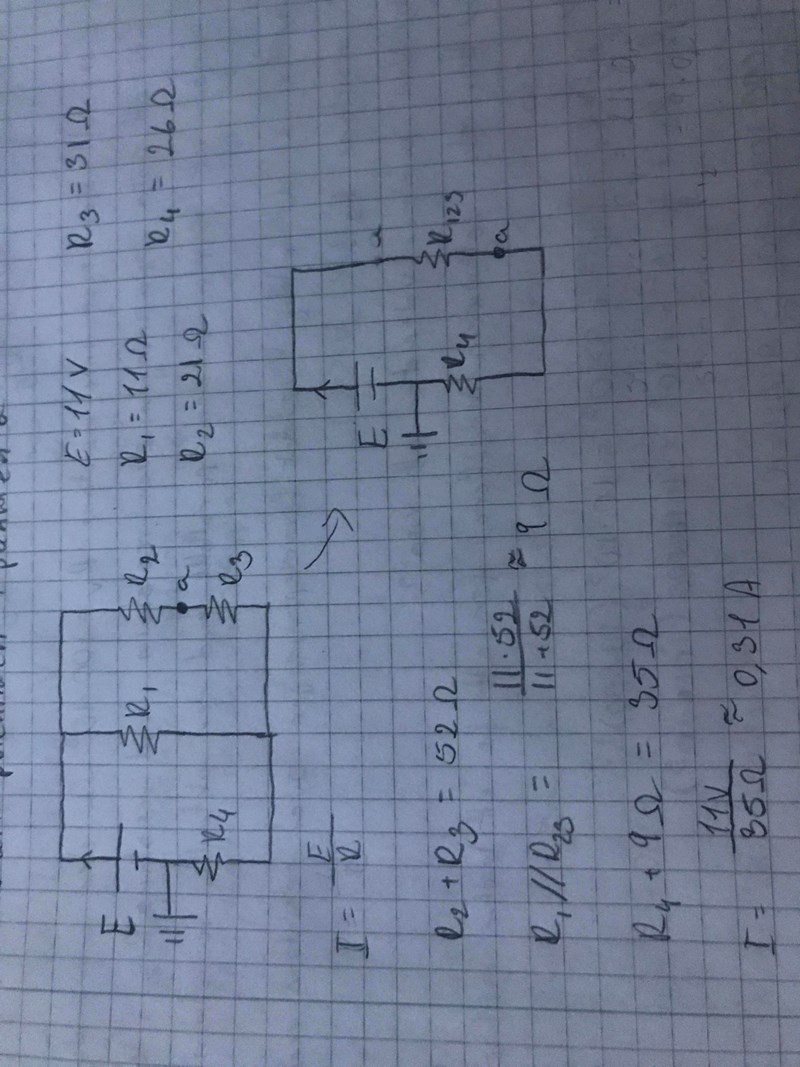 E = 11 V
R₁ = 11 Ω
R₂ = 21 Ω
R₃ = 31 Ω
R₄ = 26 Ω
E
R₄
R₁
R₂
a
R₃
E
R₄
R₁₂₃
a
I = E/R
R₂ + R₃ = 52 Ω
R₁ // R₂₃ = 11·52/11+52 ≈ 9 Ω
R₄ + 9 Ω = 35 Ω
I = 11V/35Ω ≈ 0,31 A